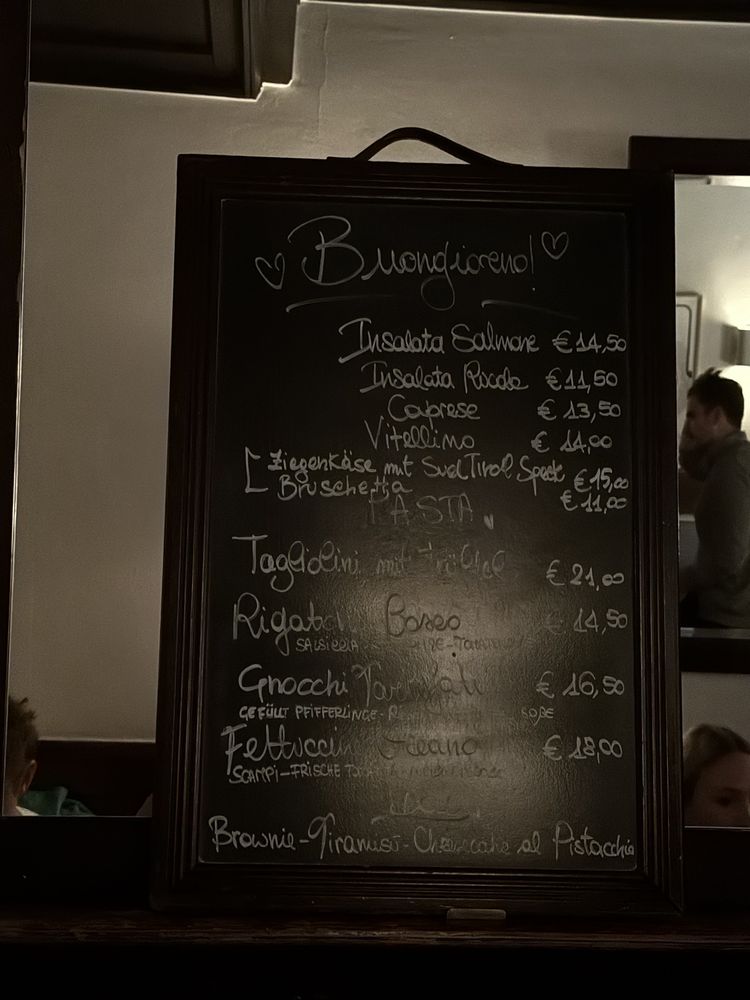 Buongiorno!
Insalata Salmone €14,50
Insalata Rucola €11,50
Caprese €13,50
Vitellino €14,00
Ziegenkäse mit SüdTirol Speck €15,00
Bruschetta €11,00
PASTA
Tagliolini mit Trüffel €21,00
Rigatoni Bosco €14,50
SALSICCIA
Gnocchi €16,50
GEFÜLLT PFIFFERLINGE- SOßE
Fettuccine €18,00
SCAMPI-FRISCHE
Brownie-Tiramisù-Cheesecake al Pistacchio